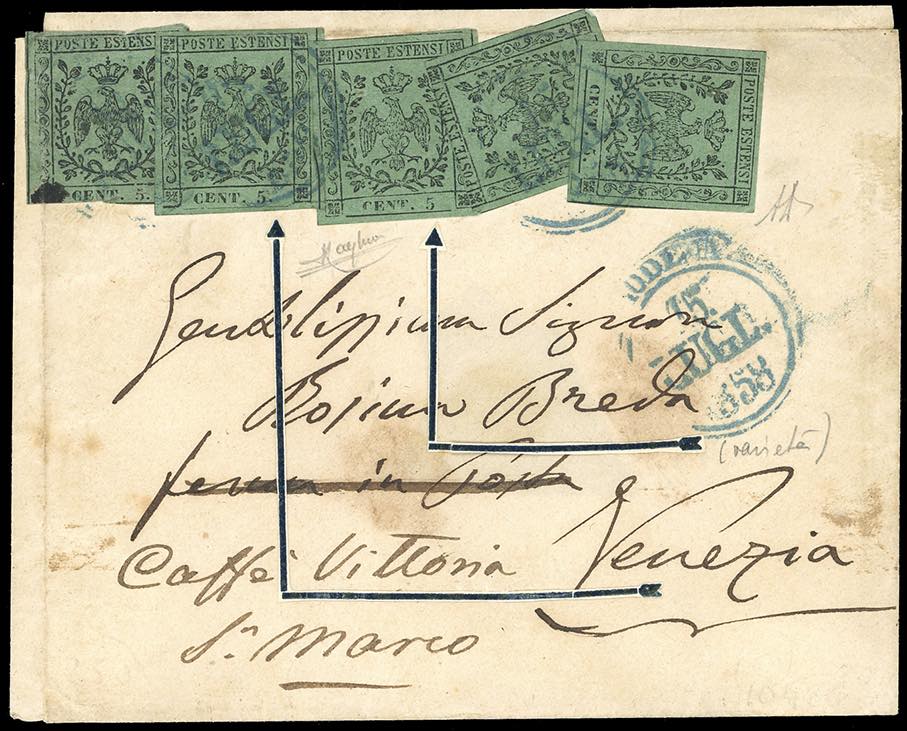 POSTE ESTENSI
CENT. 5.
POSTE ESTENSI
CENT. 5.
POSTE ESTENSI
CENT. 5
POSTE ESTENSI
POSTE ESTENSI
CENT. 5
MODENA
15
LUGL.
1858
Rosina Breda
(varietà)
ferma in Posta
Venezia
Caffè Vittoria
Sn. Marco